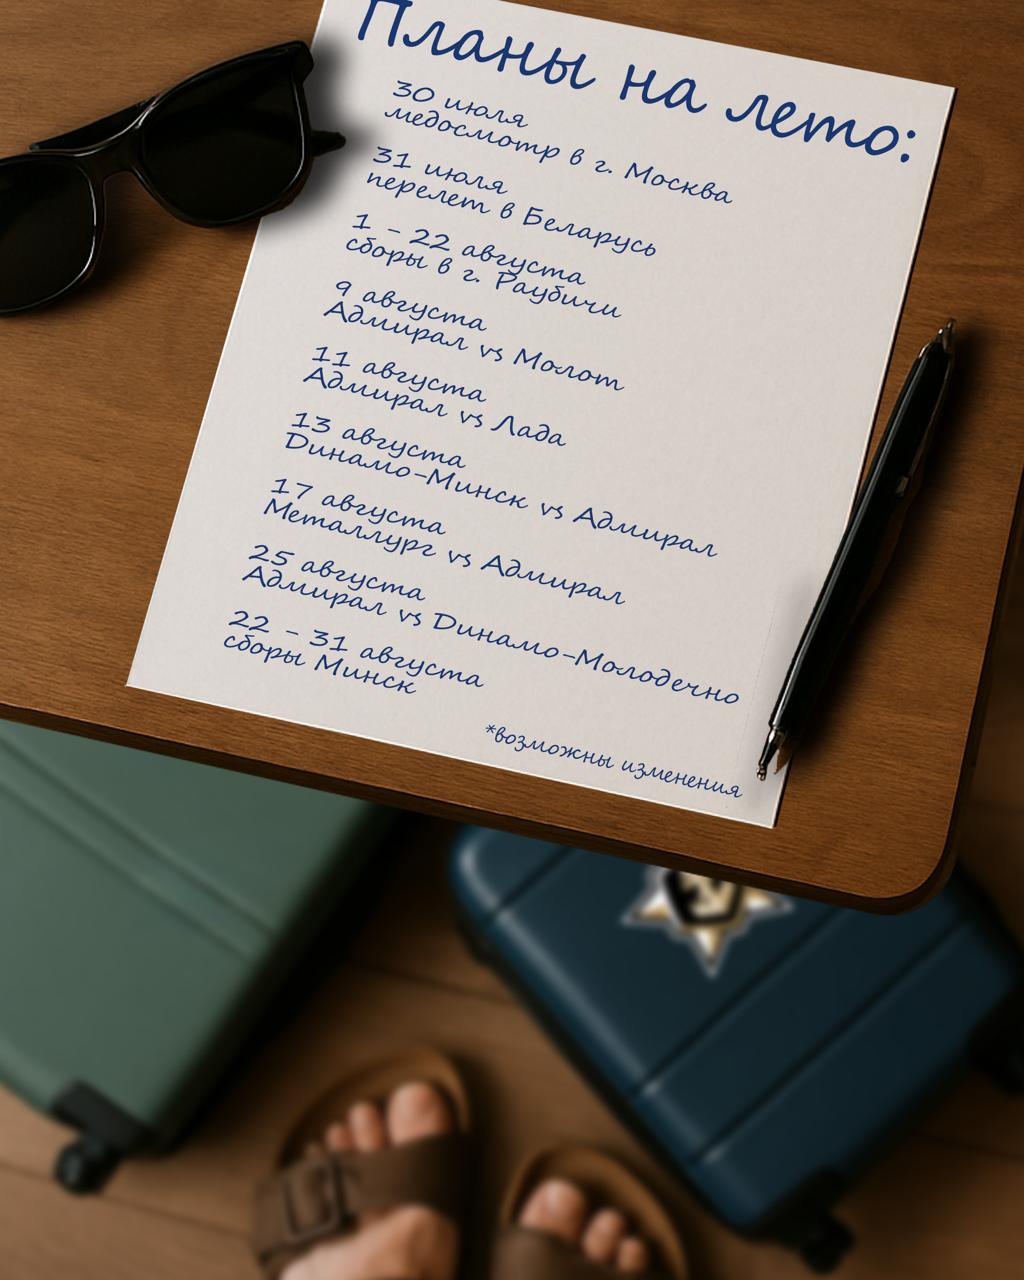 Планы на лето:
30 июля
медосмотр в г. Москва
31 июля
перелет в Беларусь
1 - 22 августа
сборы в г. Раубичи
9 августа
Адмирал vs Молот
11 августа
Адмирал vs Лада
13 августа
Динамо-Минск vs Адмирал
17 августа
Металлург vs Адмирал
25 августа
Адмирал vs Динамо-Молодечно
22 - 31 августа
сборы Минск
*возможны изменения